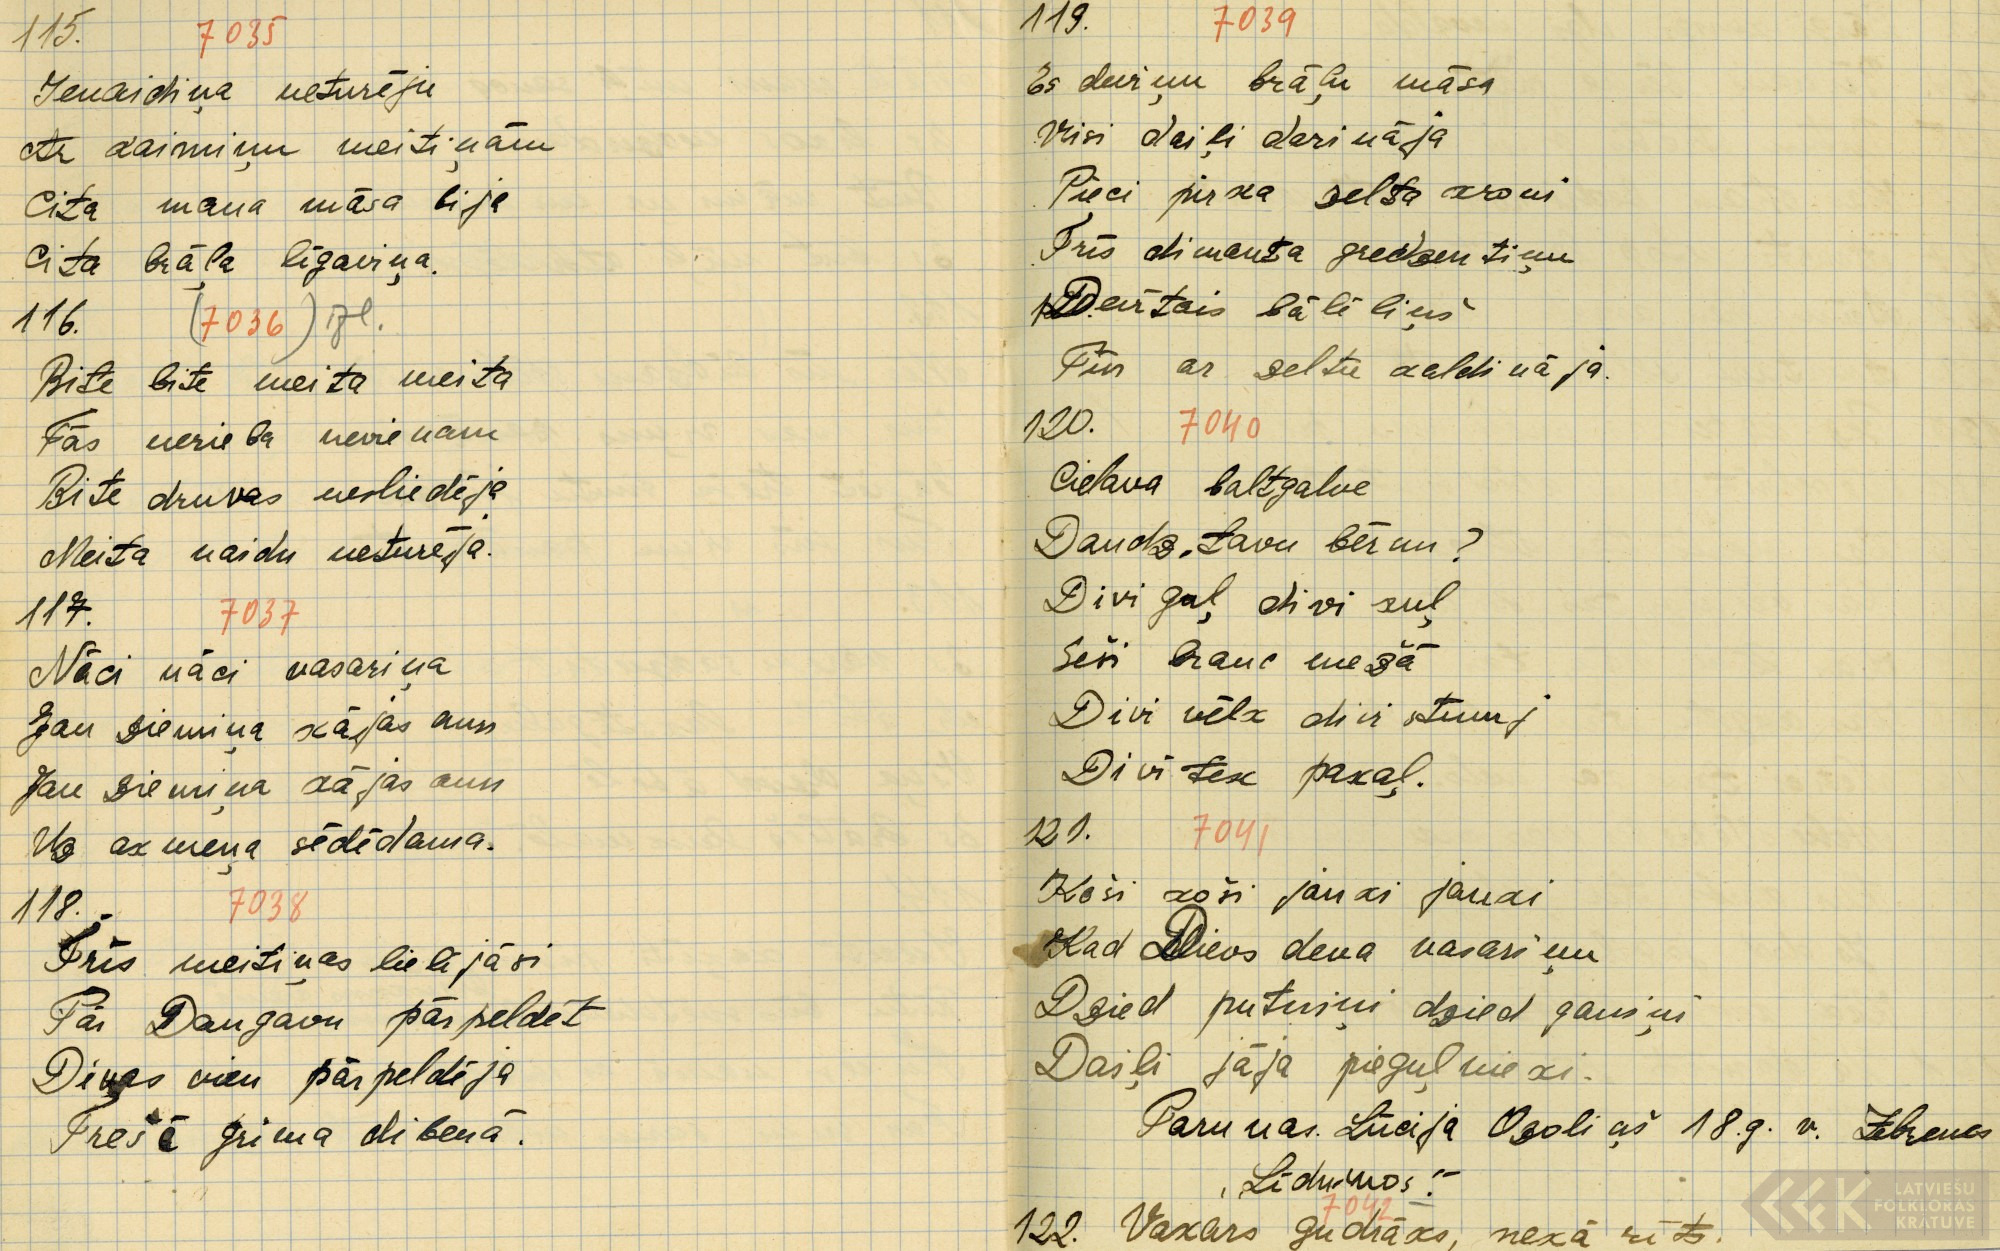 115. 7035
Ienaidiņa neturēju
Ar kaimiņu meitiņām
Cita mana māsa bija
Cita brāļa līgaviņa.
116. (7036) izl.
Bite bite meita meita
Tās nerieba nevienam
Bite druvas nesliedēja
Meita naidu neturēja.
117. 7037
Nāci nāci vasariņa
Jau ziemiņa kājas aun
Jau ziemiņa kājas aun
Uz akmeņa sēdēdama.
118. 7038
Trīs meitiņas lielījāsi
Pār Daugavu pārpeldēt
Divas vien pārpeldēja
Trešā grima dibenā.
119. 7039
Es deviņu brāļu māsa
Visi daiļi darināja
Pieci pirka zelta kroni
Trīs dimanta gredzentiņu
Devītais bālēliņš
Tīri ar zeltu kaldināja.
120. 7040
Cielava baltgalve
Daudz tavu bērnu?
Divi guļ divi kuļ
Seši brauc mežā
Divi velk divi stumj
Divi tek pakaļ.
121. 7041
Koši koši jauki jauki
Kad Dievs deva vasariņu
Dzied putniņi dzied ganiņi
Daiļi jāja pieguļnieki.
Paru nas. Lūcija Ozoliņš 18.g. v. Zebrenes
„Līdumos".
7042
122. Vakars gudrāks, nekā rīts.
LATVIEŠU
FOLKLORAS
KRĀTUVE